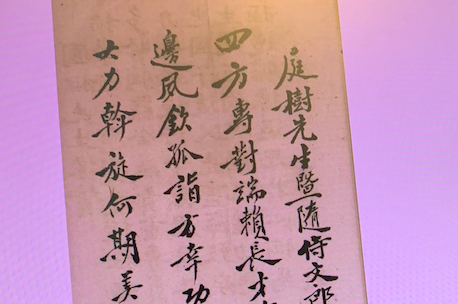 庭樹先生暨隨侍文郎
四方專對端賴長才
邊夙欽孤詣方幸功
大力斡旋何期美